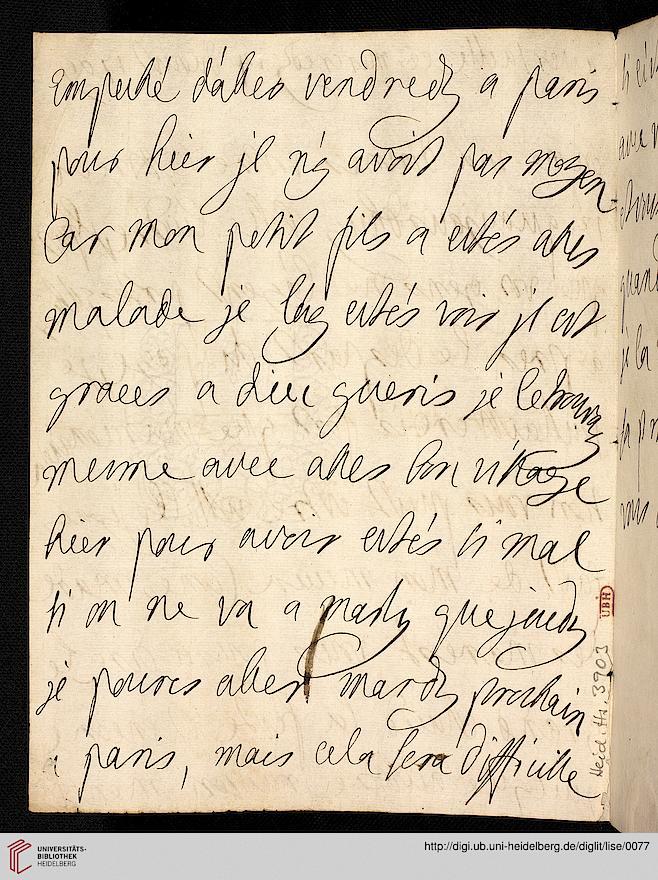 Empeché d'aller vendredy a paris
pour hier jl n'y avoit pas moyen
Car mon petit fils a estés ases
malade je l'ay estés voir jl est
graces a dieu gueris je le trouvay
mesme avec ases bon visage
hier pour avoir estés si mal
si on ne va a marly que jeudy
je poures aller mardy prochain
a paris, mais cela sera difficille
UBH
Heid. Hs. 3903
UNIVERSITÄTS-
BIBLIOTHEK
HEIDELBERG
http://digi.ub.uni-heidelberg.de/diglit/lise/0077